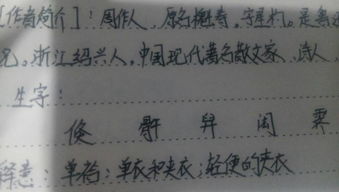 [作者简介]:周作人 原名櫆寿,字星杓。是鲁迅
兄。浙江绍兴人,中国现代著名散文家 诗人、
生字:
倏 舁 阔 栗
释意:单袷:单衣和夹衣;轻便的夹衣